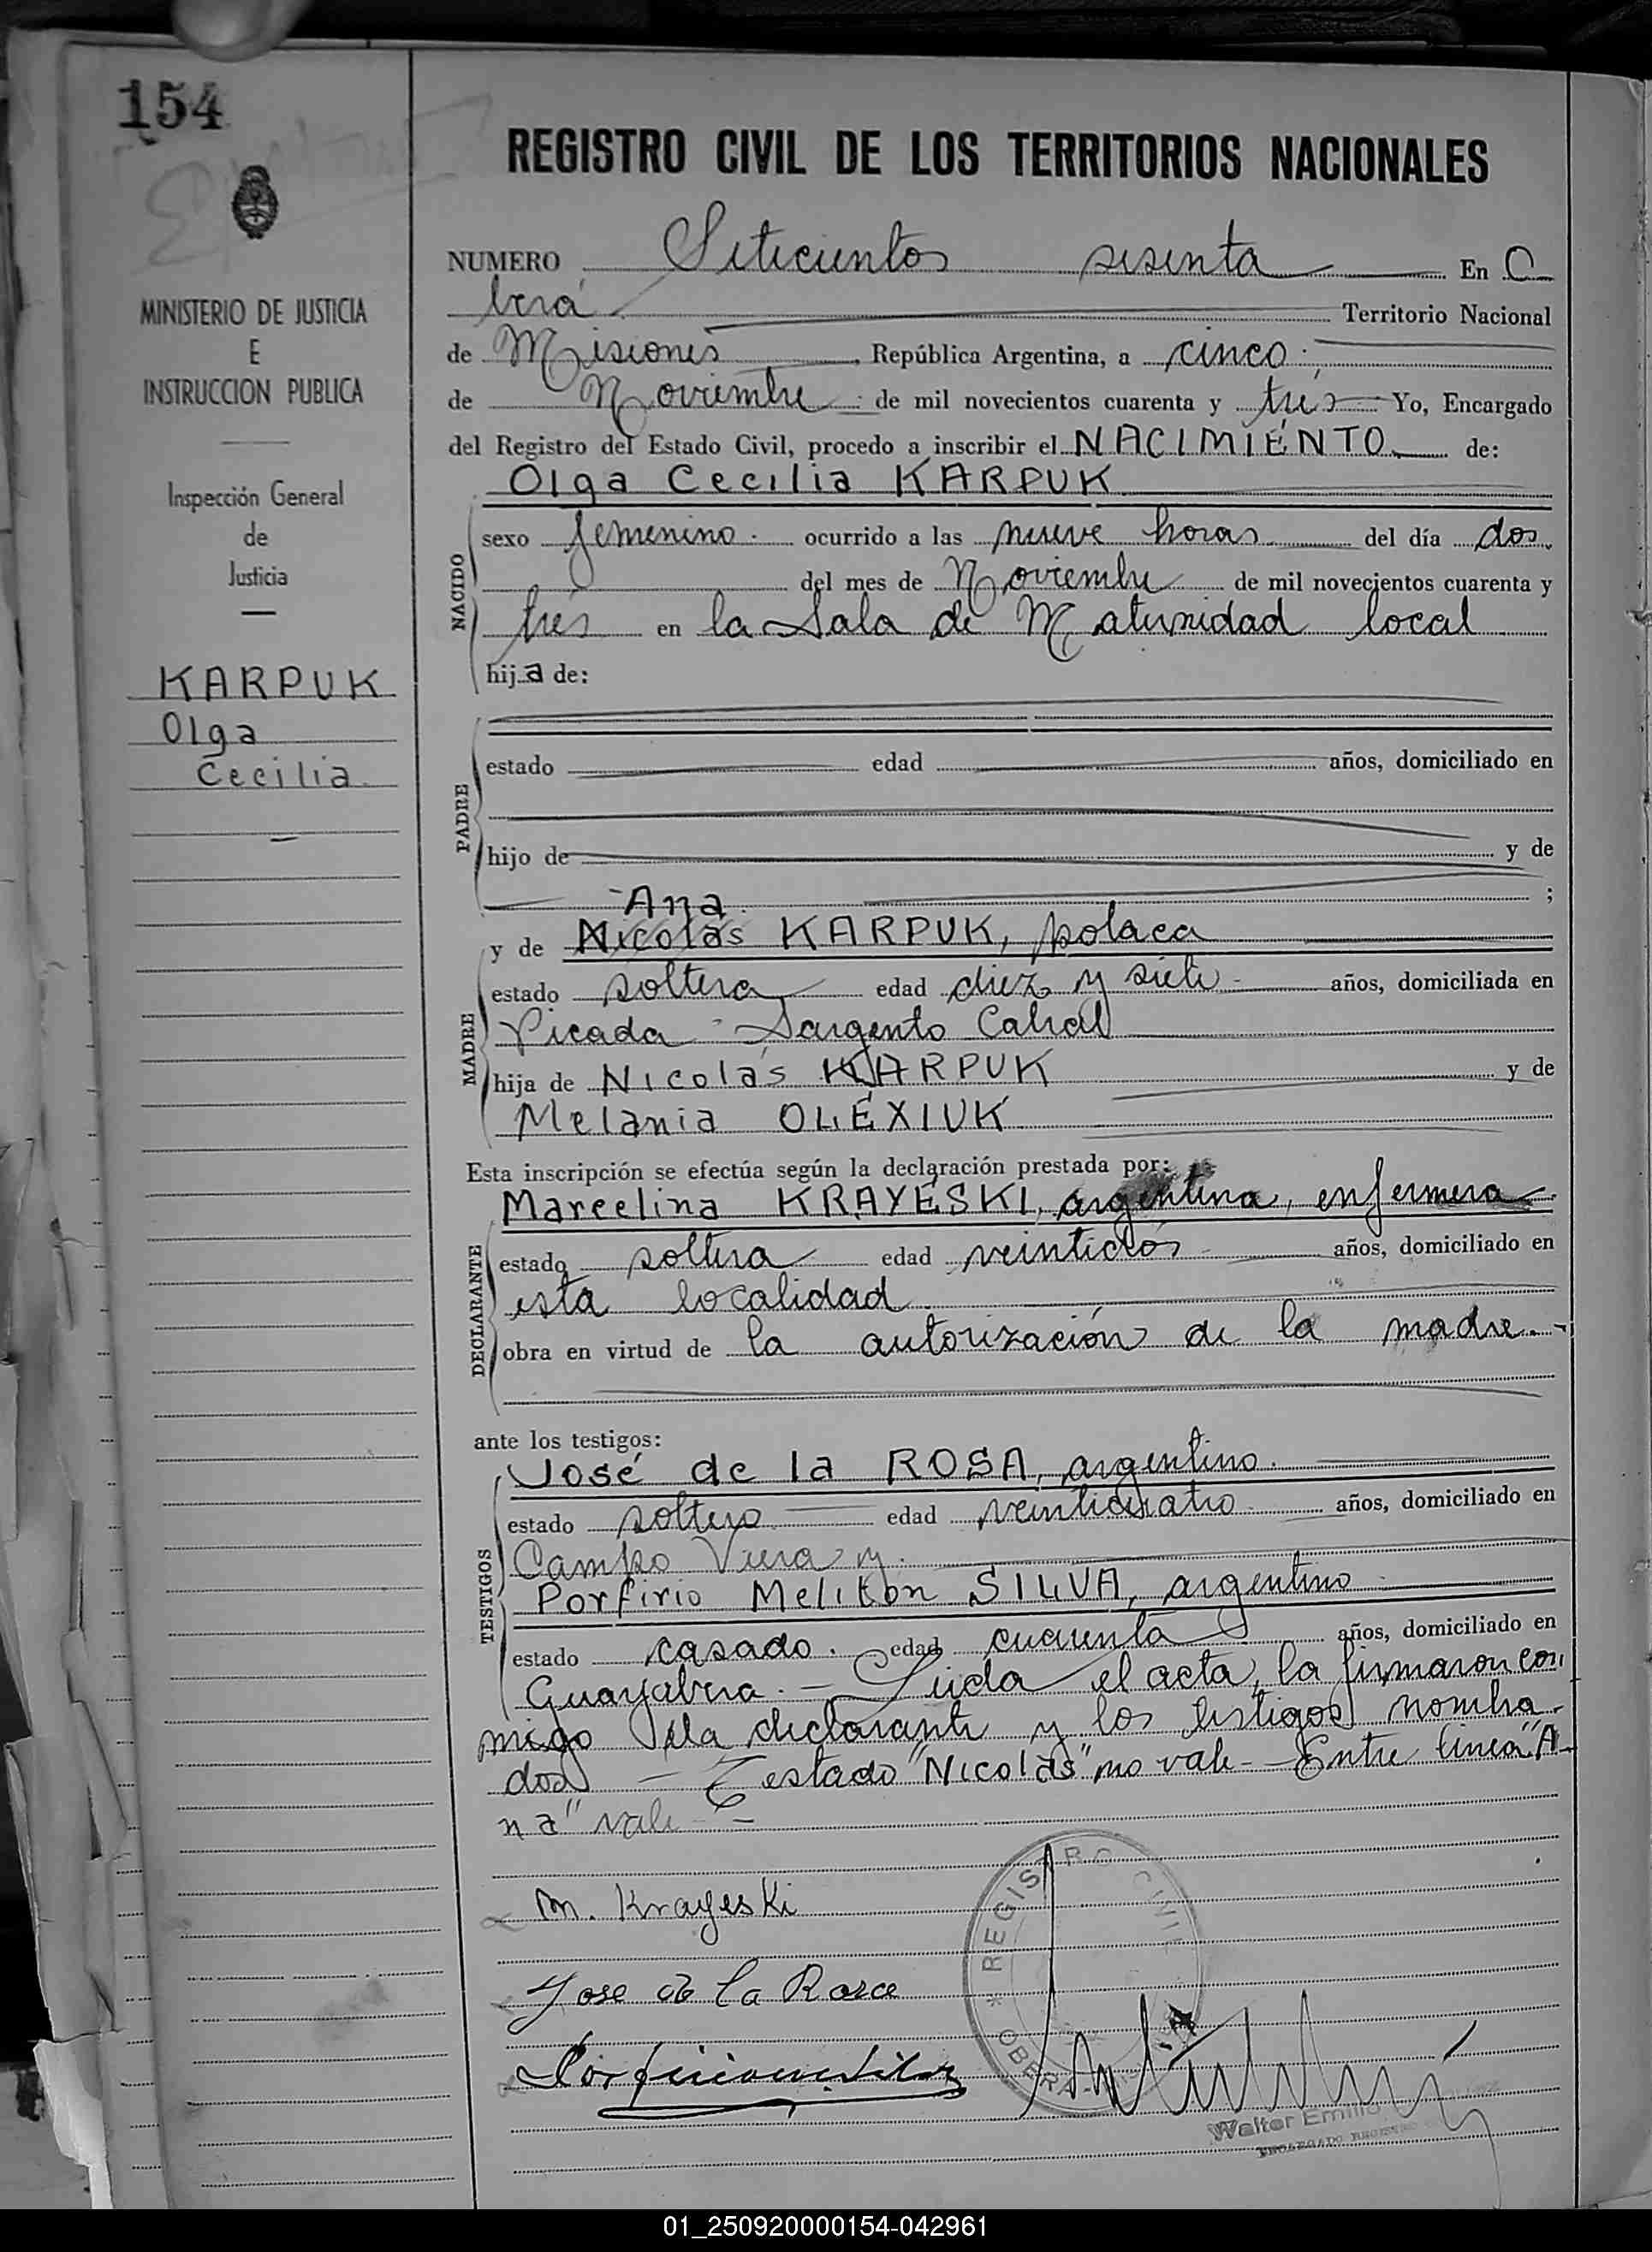 154
REGISTRO CIVIL DE LOS TERRITORIOS NACIONALES
MINISTERIO DE JUSTICIA
E
INSTRUCCION PUBLICA
Inspección General
de
Justicia
KARPUK
Olga
Cecilia
NUMERO Setecientos sesenta En O
berá Territorio Nacional
de Misiones, República Argentina, a cinco
de Noviembre de mil novecientos cuarenta y tres Yo, Encargado
del Registro del Estado Civil, procedo a inscribir el NACIMIENTO de:
Olga Cecilia KARPUK
NACIDO
sexo femenino. ocurrido a las nueve horas del día dos
del mes de Noviembre de mil novecientos cuarenta y
tres en la Sala de Maternidad local
hija de:
PADRE
estado edad años, domiciliado en
hijo de y de
;
Ana
y de Nicolás KARPUK, polaca
MADRE
estado soltera edad diez y siete años, domiciliada en
Picada Sargento Cabral
hija de Nicolás KARPUK y de
Melania OLEXIUK
Esta inscripción se efectúa según la declaración prestada por:
Marcelina KRAYESKI, argentina, enfermera
DECLARANTE
estado soltera edad veintidós años, domiciliado en
esta localidad
obra en virtud de la autorización de la madre.-
ante los testigos:
José de la ROSA, argentino.
TESTIGOS
estado soltero edad veinticuatro años, domiciliado en
Campo Viera y
Porfirio Meliton SILVA, argentino
estado casado. edad cuarenta años, domiciliado en
Guayabera.- Leida el acta, la firmaron con
migo la declarante y los testigos nombra
dos - Testado "Nicolás" no vale - Entre linea "A
na" vale -
M. Krayeski
Jose de la Rosa
REGISTRO CIVIL
* OBERA
Walter Emilio
01_250920000154-042961